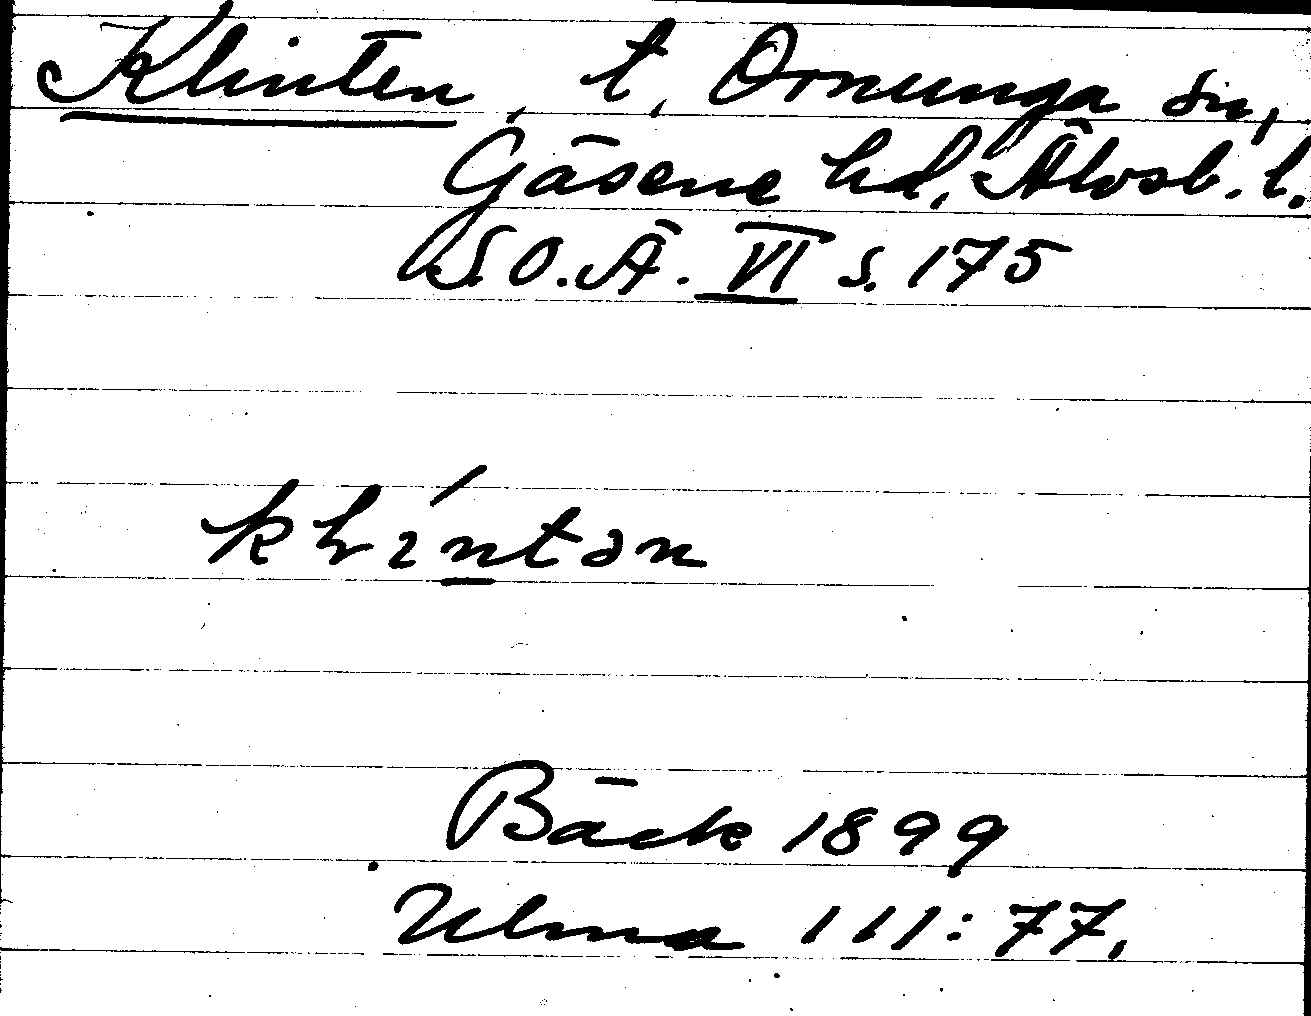 Klinten, t, Ornunga sn,
Gäsene hd, Älvsb. l.
S.O.Ä. VI s. 175
klíntən
Bäck 1899
Ulma 111:77.